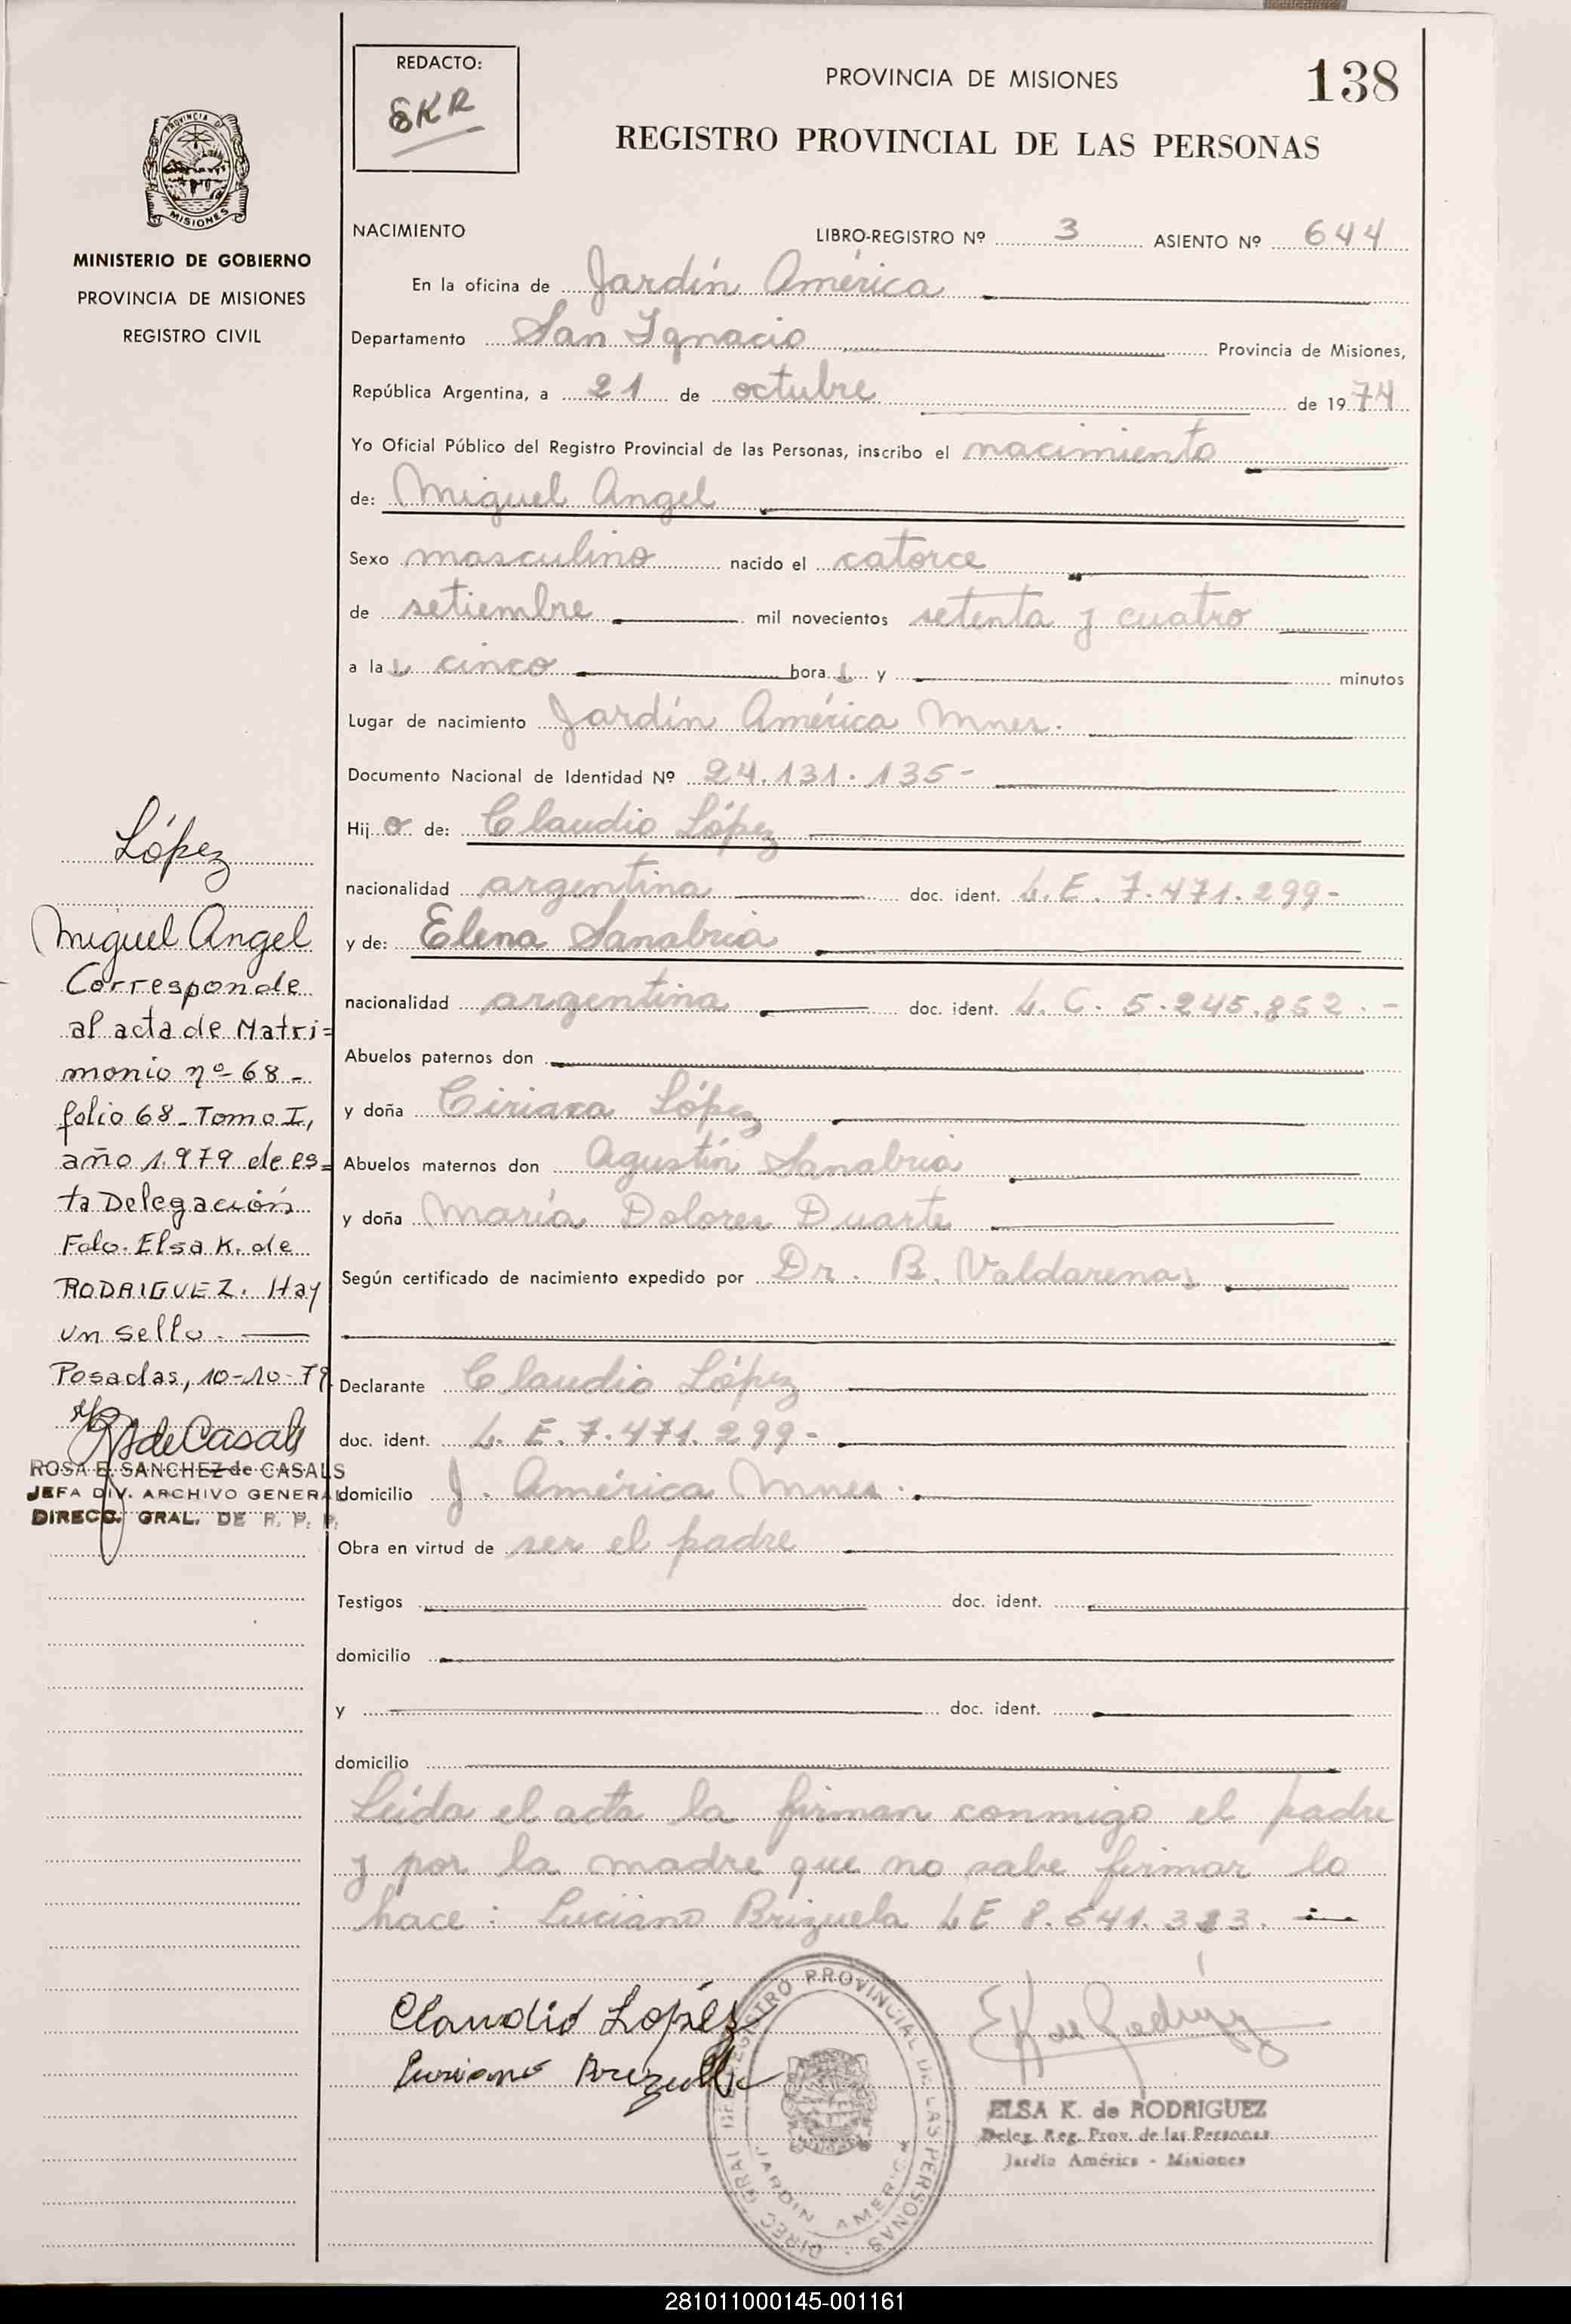 REDACTO:
EKR
PROVINCIA DE MISIONES
138
REGISTRO PROVINCIAL DE LAS PERSONAS
PROVINCIA DE
MISIONES
MINISTERIO DE GOBIERNO
PROVINCIA DE MISIONES
REGISTRO CIVIL
NACIMIENTO LIBRO-REGISTRO Nº 3 ASIENTO Nº 644
En la oficina de Jardín América
Departamento San Ignacio Provincia de Misiones,
República Argentina, a 21 de octubre de 1974
Yo Oficial Público del Registro Provincial de las Personas, inscribo el nacimiento
de: Miguel Angel
Sexo masculino nacido el catorce
de setiembre mil novecientos setenta y cuatro
a las cinco horas y minutos
Lugar de nacimiento Jardín América Mnes.
Documento Nacional de Identidad Nº 24.131.135-
Hijo de: Claudio López
nacionalidad argentina doc. ident. L.E. 7.471.299-
y de: Elena Sanabria
nacionalidad argentina doc. ident. L.C. 5.245.852.-
Abuelos paternos don
y doña Ciriaca López
Abuelos maternos don Agustín Sanabria
y doña María Dolores Duarte
Según certificado de nacimiento expedido por Dr. B. Valdarena
Declarante Claudio López
doc. ident. L.E. 7.471.299-
domicilio J. América Mnes.
Obra en virtud de ser el padre
Testigos doc. ident.
domicilio
y doc. ident.
domicilio
Leída el acta la firman conmigo el padre
y por la madre que no sabe firmar lo
hace: Luciano Brizuela LE 8.541.323.
López
Miguel Angel
Corresponde
al acta de Matri=
monio nº 68-
folio 68-Tomo I,
año 1.979 de es=
ta Delegación
Fdo. Elsa K. de
RODRIGUEZ. Hay
un sello.
Posadas, 10-10-79
de Casals
ROSA E. SANCHEZ de CASALS
JEFA DIV. ARCHIVO GENERAL
DIRECC. GRAL. DE R. P. P.
Claudio López
Luciano Brizuela
DIREC GRAL DEL REGISTRO PROVINCIAL DE LAS PERSONAS
JARDIN AMERICA
EK de Rodríguez
ELSA K. de RODRIGUEZ
Deleg. Reg. Prov. de las Personas
Jardín América - Misiones
281011000145-001161